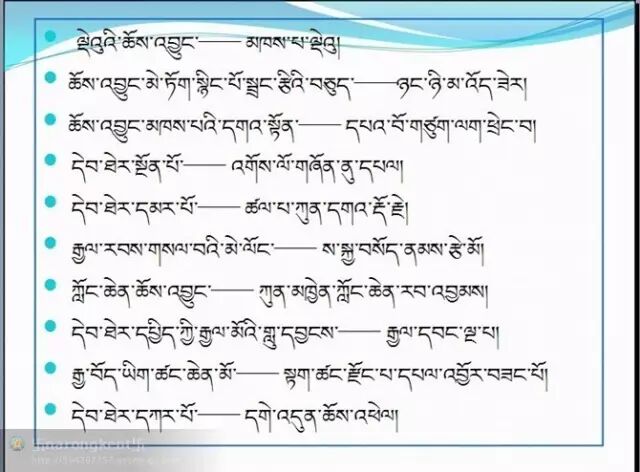 ལྡེའུའི་ཆོས་འབྱུང་—— མཁས་པ་ལྡེའུ།
ཆོས་འབྱུང་མེ་ཏོག་སྙིང་པོ་སྦྲང་རྩིའི་བཅུད་——ཉང་ཉི་མ་འོད་ཟེར།
ཆོས་འབྱུང་མཁས་པའི་དགའ་སྟོན་—— དཔའ་བོ་གཙུག་ལག་ཕྲེང་བ།
དེབ་ཐེར་སྔོན་པོ་—— འགོས་ལོ་གཞོན་ནུ་དཔལ།
དེབ་ཐེར་དམར་པོ་—— ཚལ་པ་ཀུན་དགའ་རྡོ་རྗེ།
རྒྱལ་རབས་གསལ་བའི་མེ་ལོང་—— ས་སྐྱ་བསོད་ནམས་རྩེ་མོ།
ཀློང་ཆེན་ཆོས་འབྱུང་—— ཀུན་མཁྱེན་ཀློང་ཆེན་རབ་འབྱམས།
དེབ་ཐེར་དཔྱིད་ཀྱི་རྒྱལ་མོའི་གླུ་དབྱངས་—— རྒྱལ་དབང་ལྔ་པ།
རྒྱ་བོད་ཡིག་ཚང་ཆེན་མོ་—— སྟག་ཚང་རྫོང་པ་དཔལ་འབྱོར་བཟང་པོ།
དེབ་ཐེར་དཀར་པོ་—— དགེ་འདུན་ཆོས་འཕེལ།